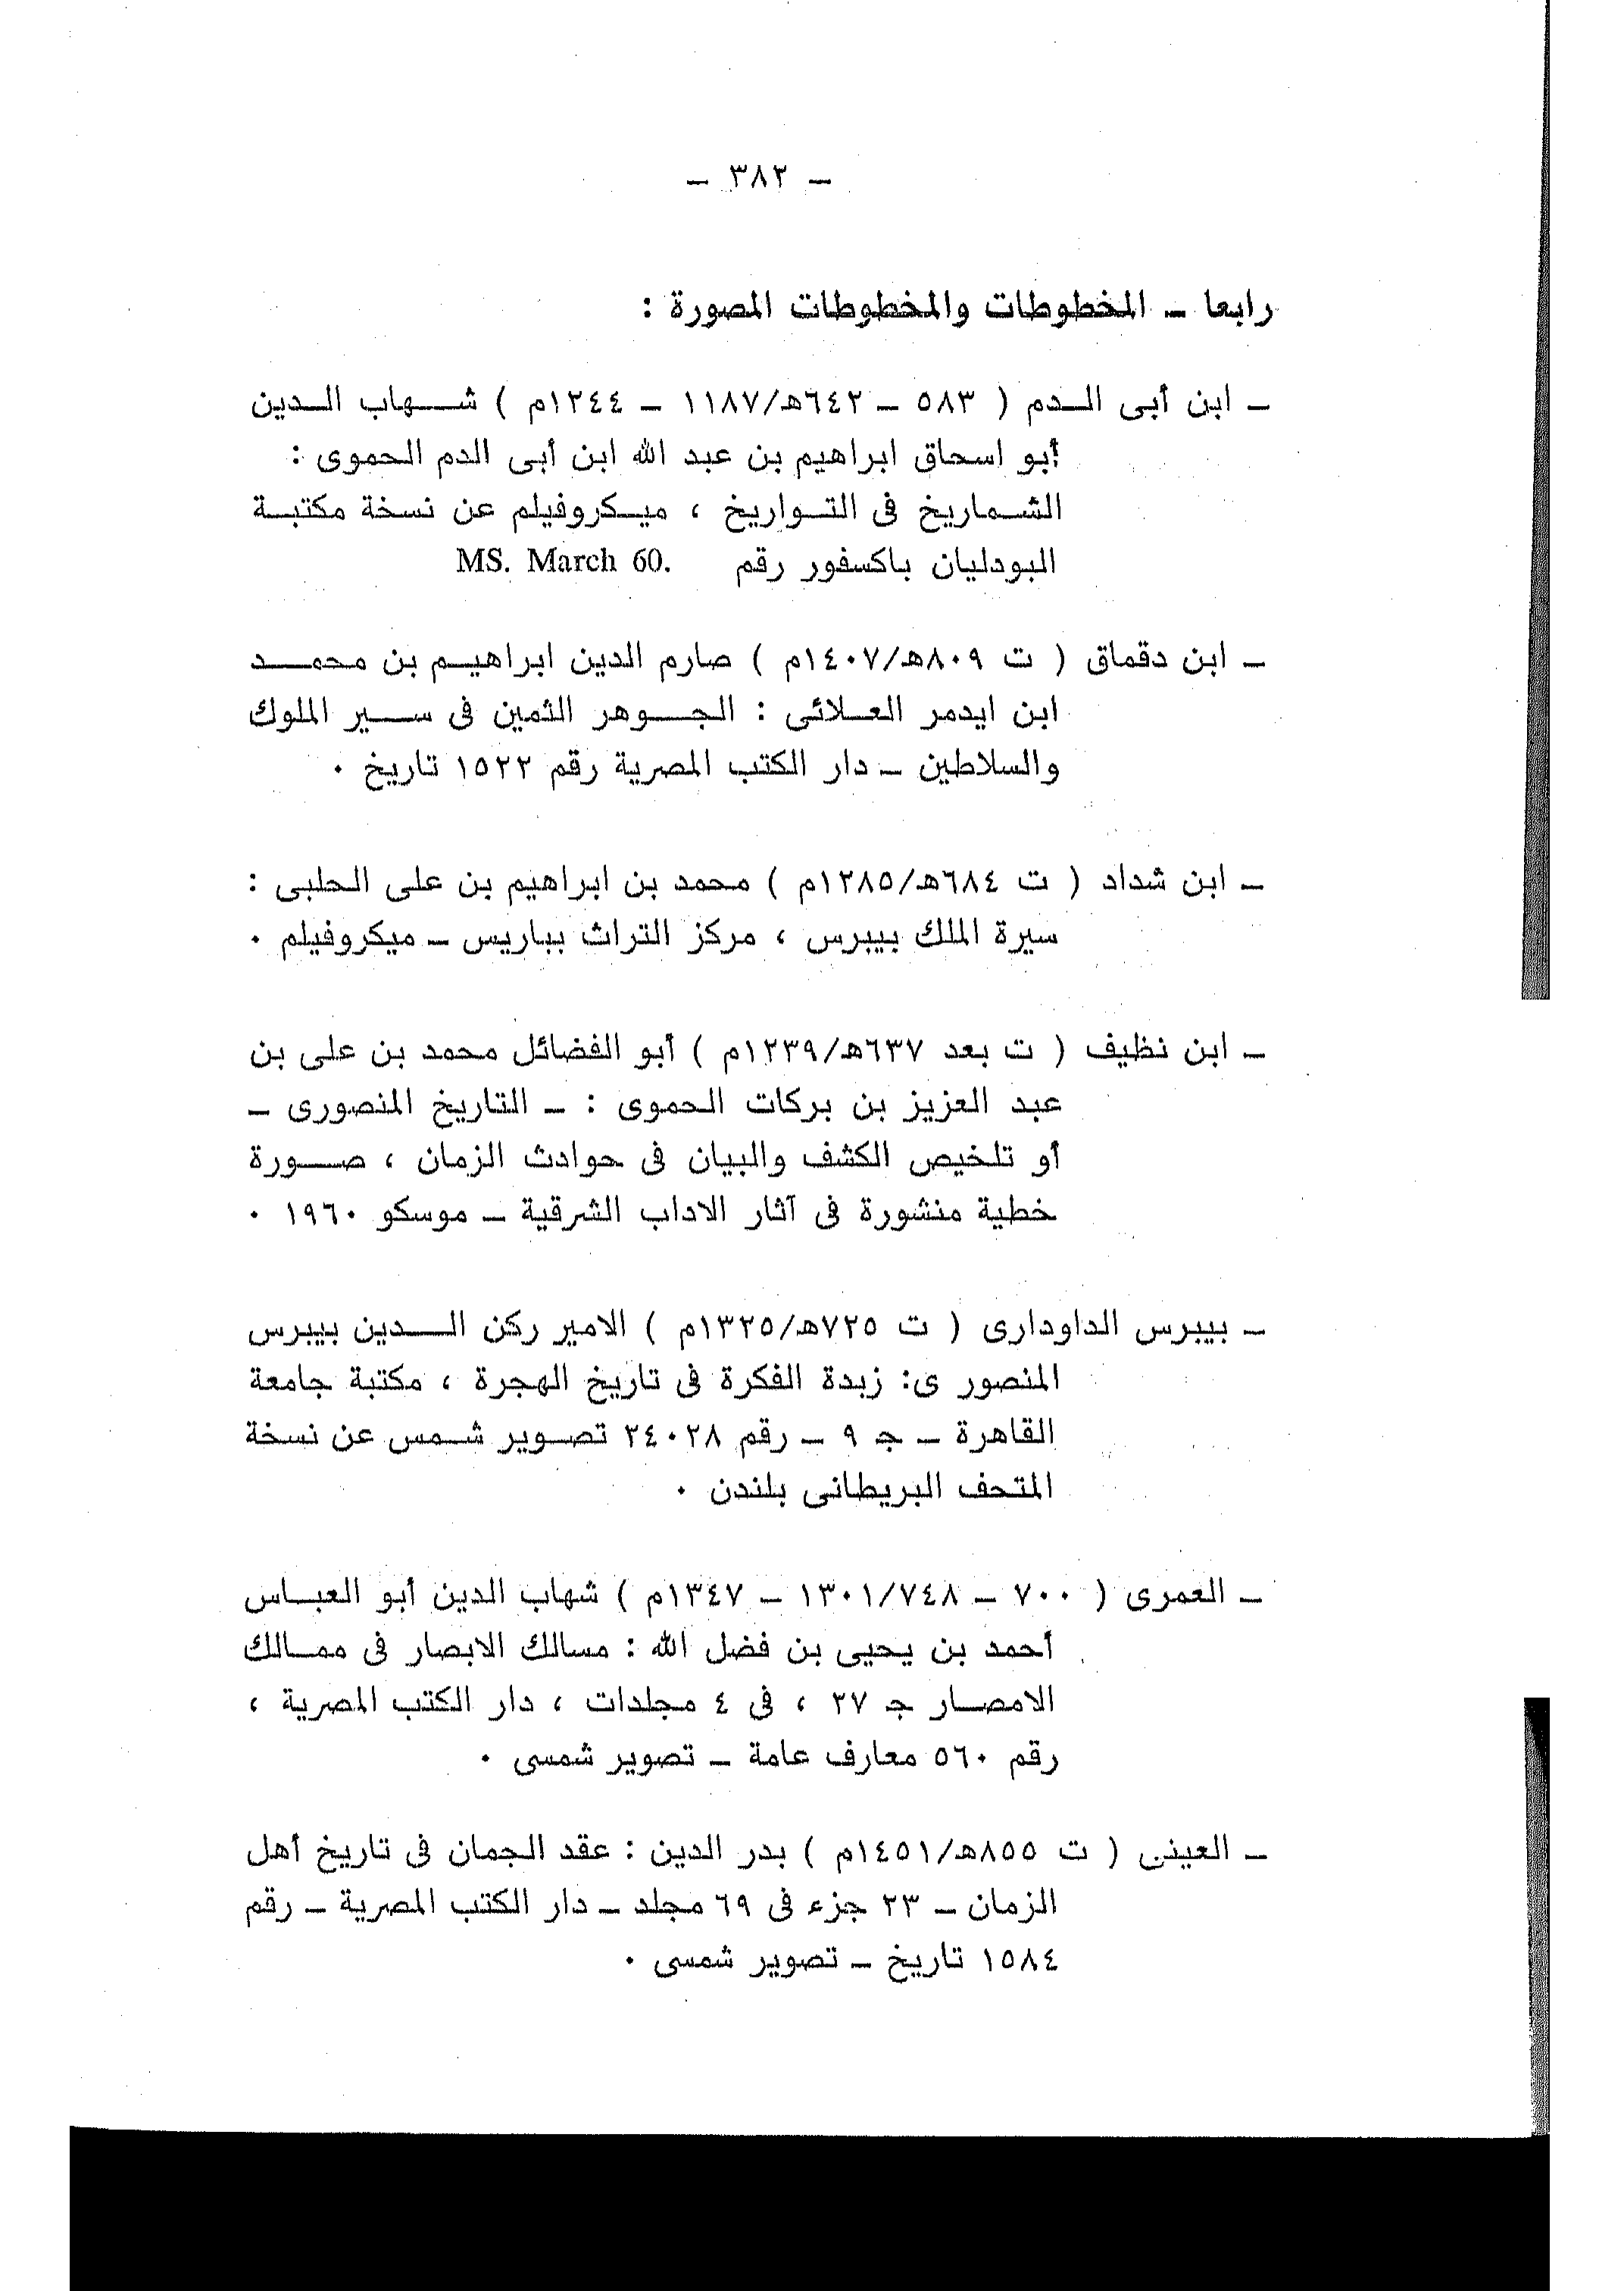 – ٣٨٢ –
رابعا – المخطوطات والمخطوطات المصورة :
– ابن أبى الدم ( ٥٨٣ – ٦٤٢هـ/١١٨٧ – ١٢٤٤م ) شهاب الدين
أبو اسحاق ابراهيم بن عبد الله ابن أبى الدم الحموى :
الشماريخ فى التواريخ ، ميكروفيلم عن نسخة مكتبة
البودليان باكسفور رقم MS. March 60.
– ابن دقماق ( ت ٨٠٩هـ/١٤٠٧م ) صارم الدين ابراهيم بن محمد
ابن ايدمر العلائى : الجوهر الثمين فى سير الملوك
والسلاطين – دار الكتب المصرية رقم ١٥٢٢ تاريخ ٠
– ابن شداد ( ت ٦٨٤هـ/١٢٨٥م ) محمد بن ابراهيم بن على الحلبى :
سيرة الملك بيبرس ، مركز التراث بباريس – ميكروفيلم ٠
– ابن نظيف ( ت بعد ٦٣٧هـ/١٢٣٩م ) أبو الفضائل محمد بن على بن
عبد العزيز بن بركات الحموى : – التاريخ المنصورى –
أو تلخيص الكشف والبيان فى حوادث الزمان ، صورة
خطية منشورة فى آثار الاداب الشرقية – موسكو ١٩٦٠ ٠
– بيبرس الداودارى ( ت ٧٢٥هـ/١٣٢٥م ) الامير ركن الدين بيبرس
المنصور ى: زبدة الفكرة فى تاريخ الهجرة ، مكتبة جامعة
القاهرة – جـ ٩ – رقم ٢٤٠٢٨ تصوير شمس عن نسخة
المتحف البريطانى بلندن ٠
– العمرى ( ٧٠٠ – ١٣٠١/٧٤٨ – ١٣٤٧م ) شهاب الدين أبو العباس
أحمد بن يحيى بن فضل الله : مسالك الابصار فى ممالك
الامصار جـ ٢٧ ، فى ٤ مجلدات ، دار الكتب المصرية ،
رقم ٥٦٠ معارف عامة – تصوير شمسى ٠
– العينى ( ت ٨٥٥هـ/١٤٥١م ) بدر الدين : عقد الجمان فى تاريخ أهل
الزمان – ٢٣ جزء فى ٦٩ مجلد – دار الكتب المصرية – رقم
١٥٨٤ تاريخ – تصوير شمسى ٠